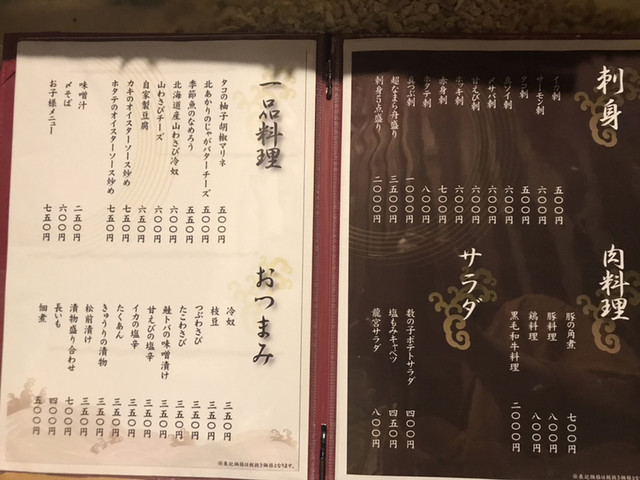 刺身
イカ刺 五〇〇円
サーモン刺 六〇〇円
タコ刺 五〇〇円
真ソイ刺 六〇〇円
〆サバ刺 六〇〇円
甘えび刺 六〇〇円
ホッキ刺 六〇〇円
赤身刺 七〇〇円
ホタテ刺 八〇〇円
真つぶ刺 一〇〇〇円
超なまら舟盛り 三五〇〇円
刺身5点盛り 二〇〇〇円
肉料理
豚の角煮 七〇〇円
豚料理 八〇〇円
鶏料理 八〇〇円
黒毛和牛料理 二〇〇〇円
サラダ
数の子ポテトサラダ 四〇〇円
塩もみキャベツ 四五〇円
龍宮サラダ 八〇〇円
※表記価格は税抜き価格となります。
一品料理
タコの柚子胡椒マリネ 五〇〇円
北あかりのじゃがバターチーズ 五〇〇円
季節魚のなめろう 五五〇円
北海道産山わさび冷奴 六〇〇円
山わさびチーズ 六〇〇円
自家製豆腐 六五〇円
カキのオイスターソース炒め 七五〇円
ホタテのオイスターソース炒め 七五〇円
味噌汁 二五〇円
〆そば 六〇〇円
お子様メニュー 七五〇円
おつまみ
冷奴 三五〇円
枝豆 三五〇円
つぶわさび 三五〇円
たこわさび 三五〇円
鮭トバの味噌漬け 三五〇円
甘えびの塩辛 三五〇円
イカの塩辛 三五〇円
たくあん 三五〇円
きゅうりの漬物 三五〇円
松前漬け 三五〇円
漬物盛り合わせ 七〇〇円
長いも 四〇〇円
佃煮 五〇〇円
※表記価格は税抜き価格となります。